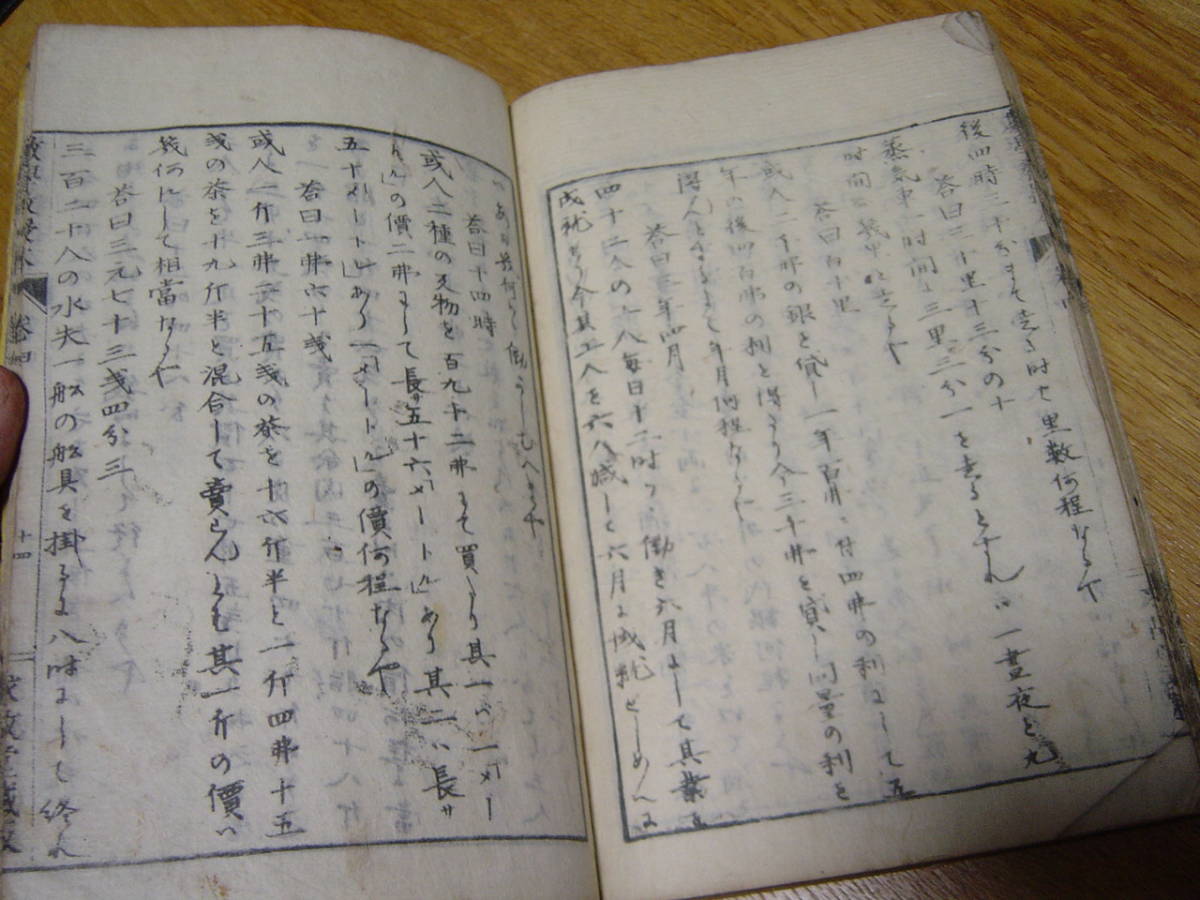 後四時三十分まて走る時ハ里数何程なるや
答曰三十里十三分の十
蒸気車一時間ニ三里三分一を走るとすれハ一昼夜と九
時間ニ幾里を走るや
答曰百十里
或人二千弗の銀を貸し一年百弗ニ付四弗の利にして五
年の後四百弗の利を得たり今三千弗を貸し同量の利を
得んとするとて年月何程なるや
答曰三年四月
四十二人の工人毎日十二時つゝ働き六月にして其業を
成就せり今其工人を六人減して六月に成就せしめんに
ハ毎日幾何とく働らしむへきや
答曰十四時
或人二種の反物を百九十二弗にて買たり其一ハ一メー
トルの價二弗にして長サ五十六メートルあり其二ハ長サ
五十メートルあり一メートルの價何程なるや
答曰一弗六十銭
或人一斤三弗二十五銭の茶を十六斤半と一斤四弗十五
銭の茶を十九斤半と混合して賣らんとも其一斤の價ハ
幾何にして相當なるや
答曰三元七十三銭四分三
三百二十人の水夫一舩の舩具を掛るに八時にして終れ
數學教授本
巻四
十四